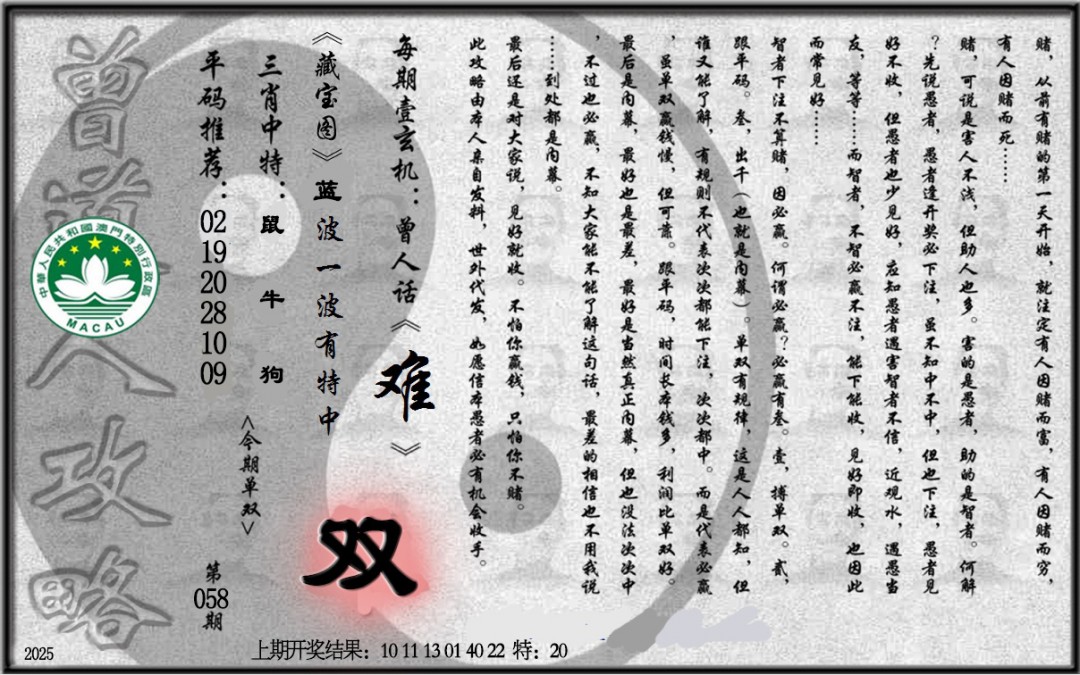 赌，从前有赌的第一天开始，就注定有人因赌而富，有人因赌而穷，
有人因赌而死……
赌，可说是害人不浅，但助人也多。害的是愚者，助的是智者。何解
？先说愚者，愚者逢开奖必下注，虽不知中不中，但也下注，愚者见
好不收，但愚者也少见好，应知愚者遇害智者不信，近观水，遇愚当
友，等等……而智者，不智必赢不注，能下能收，见好即收，也因此
而常见好……
智者下注不算赌，因必赢。何谓必赢？必赢有叁。壹，搏单双。贰，
跟平码。叁，出千（也就是内幕）。单双有规律，这是人人都知，但
谁又能了解，有规则不代表次次都能下注，次次都中。而是代表必赢
，虽单双赢钱慢，但可靠。跟平码，时间长本钱多，利润比单双好。
最后是内幕，最好也是最差，最好是当然真正内幕，但也没法次次中
，不过也必赢，不知大家能不能了解这句话，最差的相信也不用我说
……到处都是内幕。
最后还是对大家说，见好就收。不怕你赢钱，只怕你不赌。
此攻略由本人亲自发料，世外代发，如愿信本愚者必有机会收手。
每期壹玄机：曾人话《难》
《藏宝图》蓝波一波有特中
三肖中特：鼠牛狗
<今期单双>
双
平码推荐：02 19 20 28 10 09
第058期
曾道人攻略
中華人民共和國澳門特別行政區
MACAU
2025
上期开奖结果：10 11 13 01 40 22 特：20